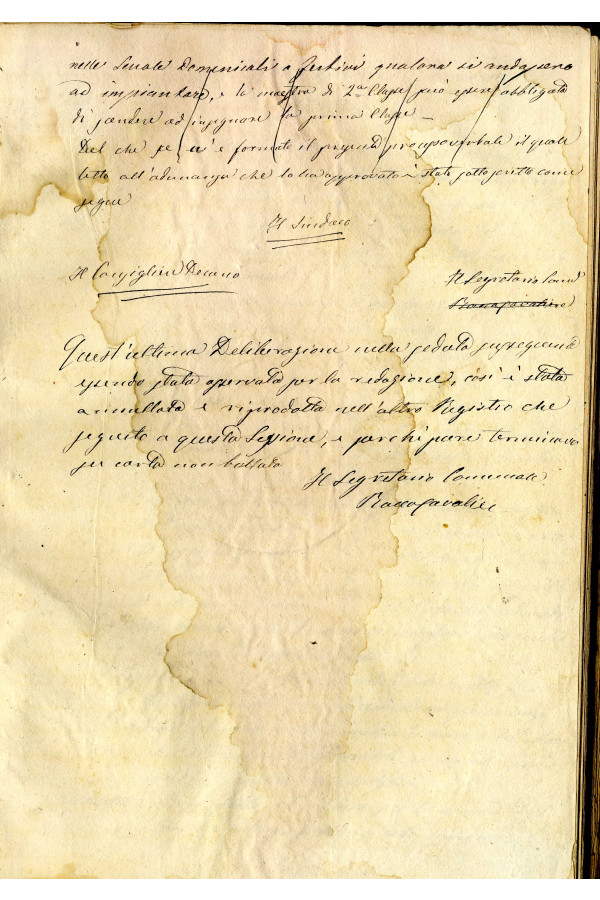 nelle Scuole Domenicali o festivi qualora si andassero
ad impiantare, e la maestra di 2a Classe può essere obbligata
di scendere ad insegnare la prima Classe —
Del che se n'è formato il presente processo verbale il quale
letto all'adunanza che lo ha approvato è stato sottoscritto come
segue
Il Sindaco
Il Consigliere Decano
Il Segretario Com
Quest'ultima Deliberazione nella seduta
essendo stata osservata per la redazione, così è stata
annullata e riprodotta nell'altro Registro che
seguito a questa Sessione, e perchè pare terminava
per carta non bollata
Il Segretario Comunale